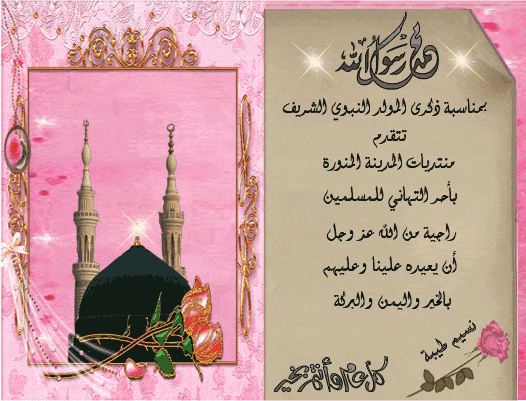 محمد رسول الله
بمناسبة ذكرى المولد النبوي الشريف
تتقدم
منتديات المدينة المنورة
بأحر التهاني للمسلمين
راجية من الله عز وجل
أن يعيده علينا وعليهم
بالخير واليمن والبركة
نسيم طيبة
كل عام وأنتم بخير